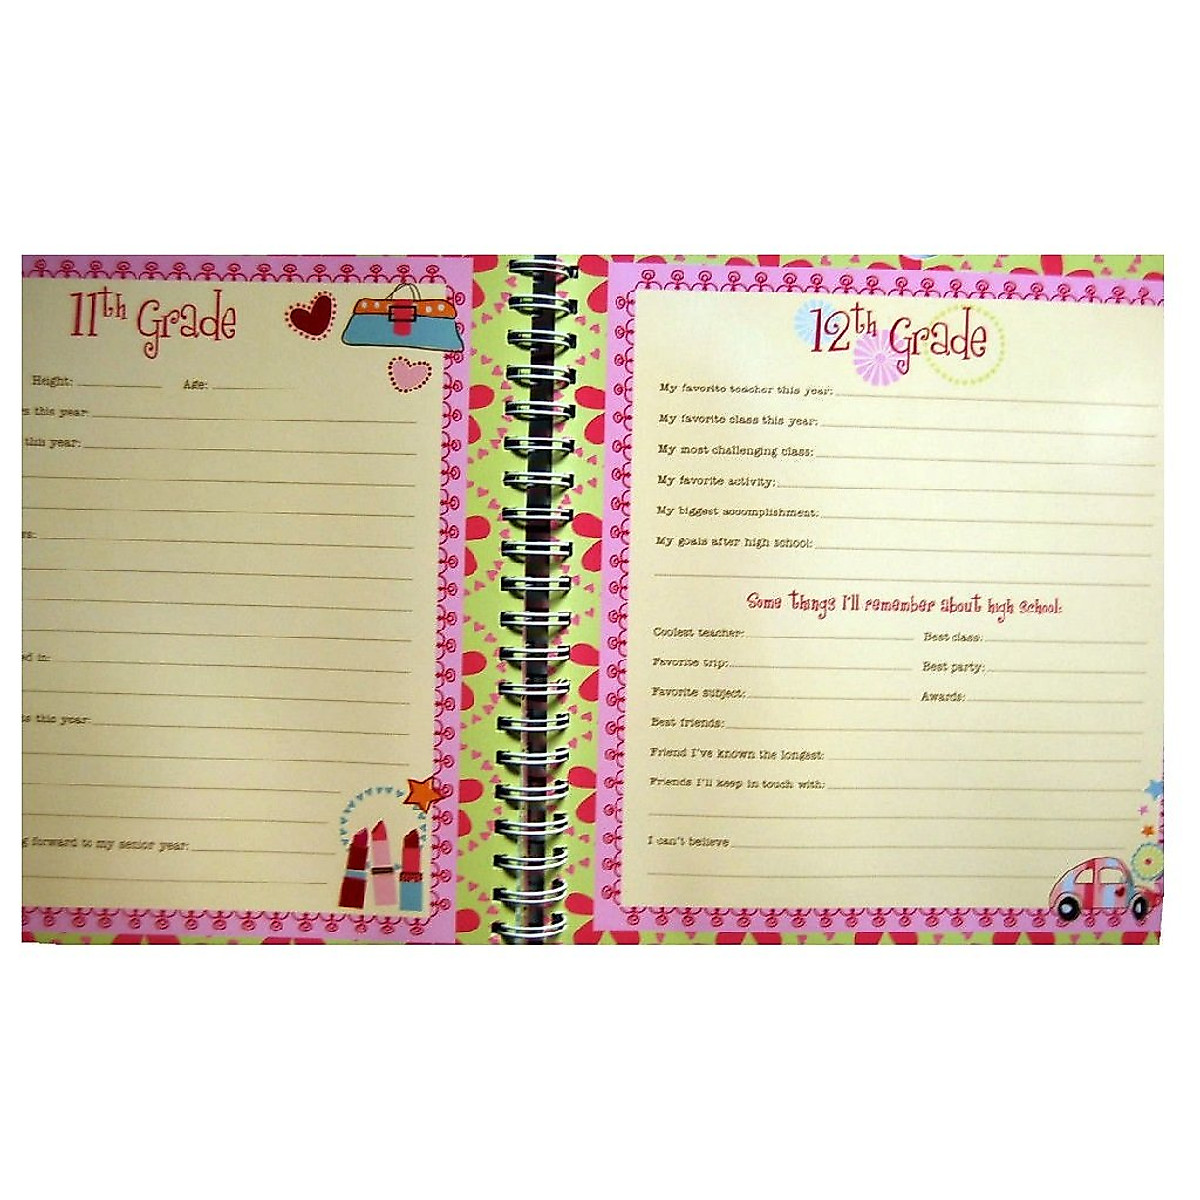 11th Grade
Height: Age:
this year:
this year:
in:
this year:
forward to my senior year:
12th Grade
My favorite teacher this year:
My favorite class this year:
My most challenging class:
My favorite activity:
My biggest accomplishment:
My goals after high school:
Some things I'll remember about high school:
Coolest teacher: Best class:
Favorite trip: Best party:
Favorite subject: Awards:
Best friends:
Friend I've known the longest:
Friends I'll keep in touch with:
I can't believe